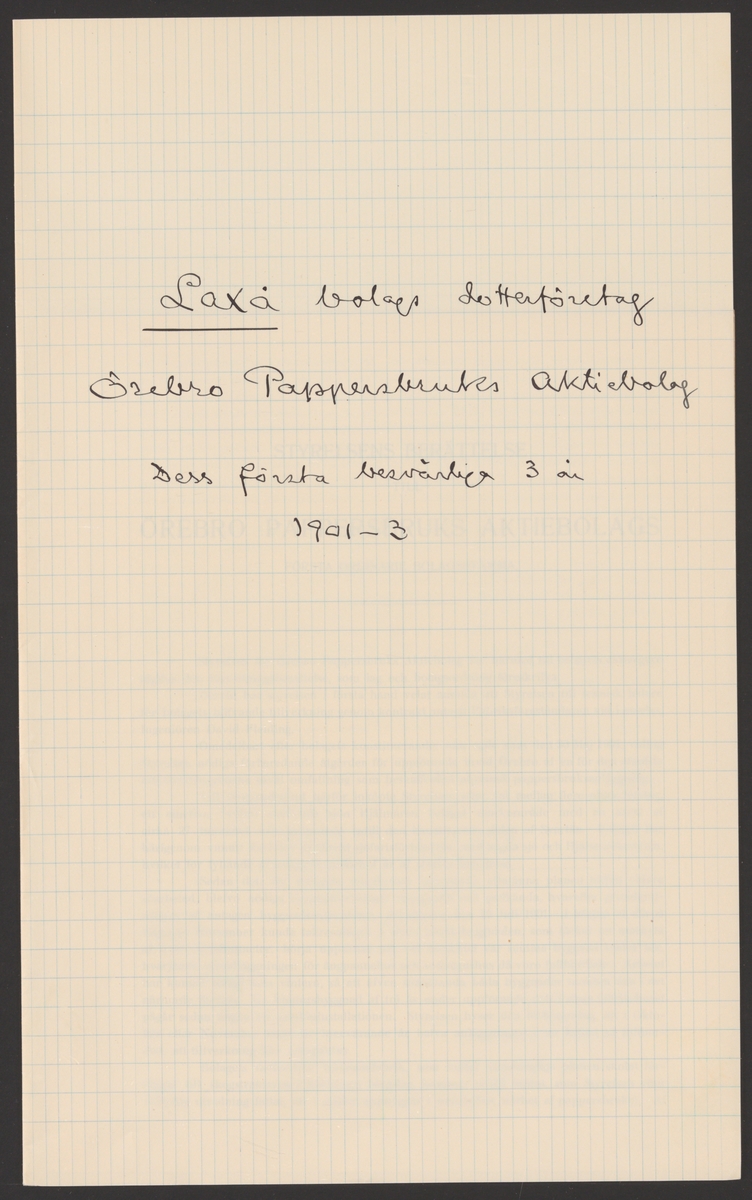 Laxå bolags dotterföretag
Örebro Pappersbruks Aktiebolag
Dess första besvärliga 3 år
1901-3